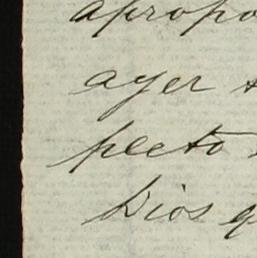 apropo
ayer
pecto
Dios q